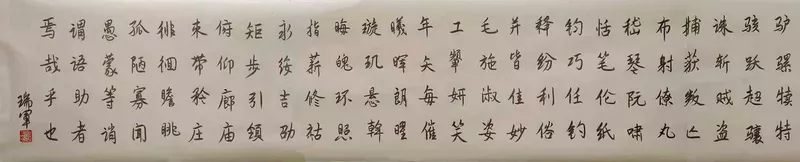 驴骡犊特
骇跃超骧
诛斩贼盗
捕获叛亡
布射僚丸
嵇琴阮啸
恬笔伦纸
钧巧任钓
释纷利俗
并皆佳妙
毛施淑姿
工颦妍笑
年矢每催
曦晖朗曜
璇玑悬斡
晦魄环照
指薪修祜
永绥吉劭
矩步引领
俯仰廊庙
束带矜庄
徘徊瞻眺
孤陋寡闻
愚蒙等诮
谓语助者
焉哉乎也
瑞军